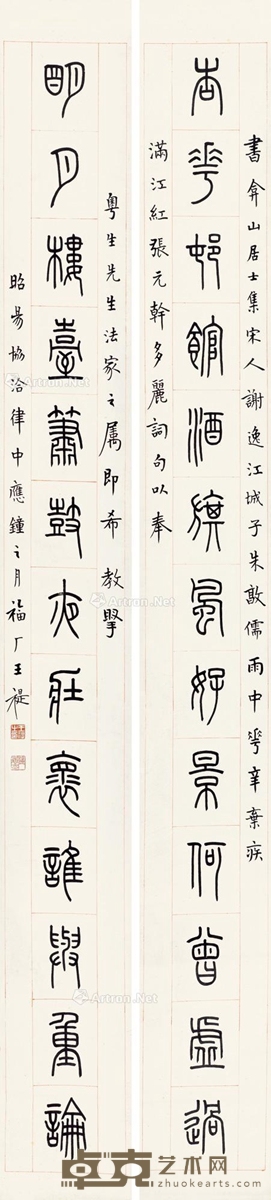 書弇山居士集宋人謝逸江城子朱敦儒雨中花辛棄疾
杏花邨館酒旗風好景何曾虛過
滿江紅張元幹多麗詞句以奉
粵生先生法家之属即希 教
明月樓臺簫鼓夜壯懷誰與重論
昭昜協洽律中應鐘之月福厂王禔
Artron.Net
Artron.Net
Artron.Net
Artron.Net
卓克艺术网
www.zhuokearts.com